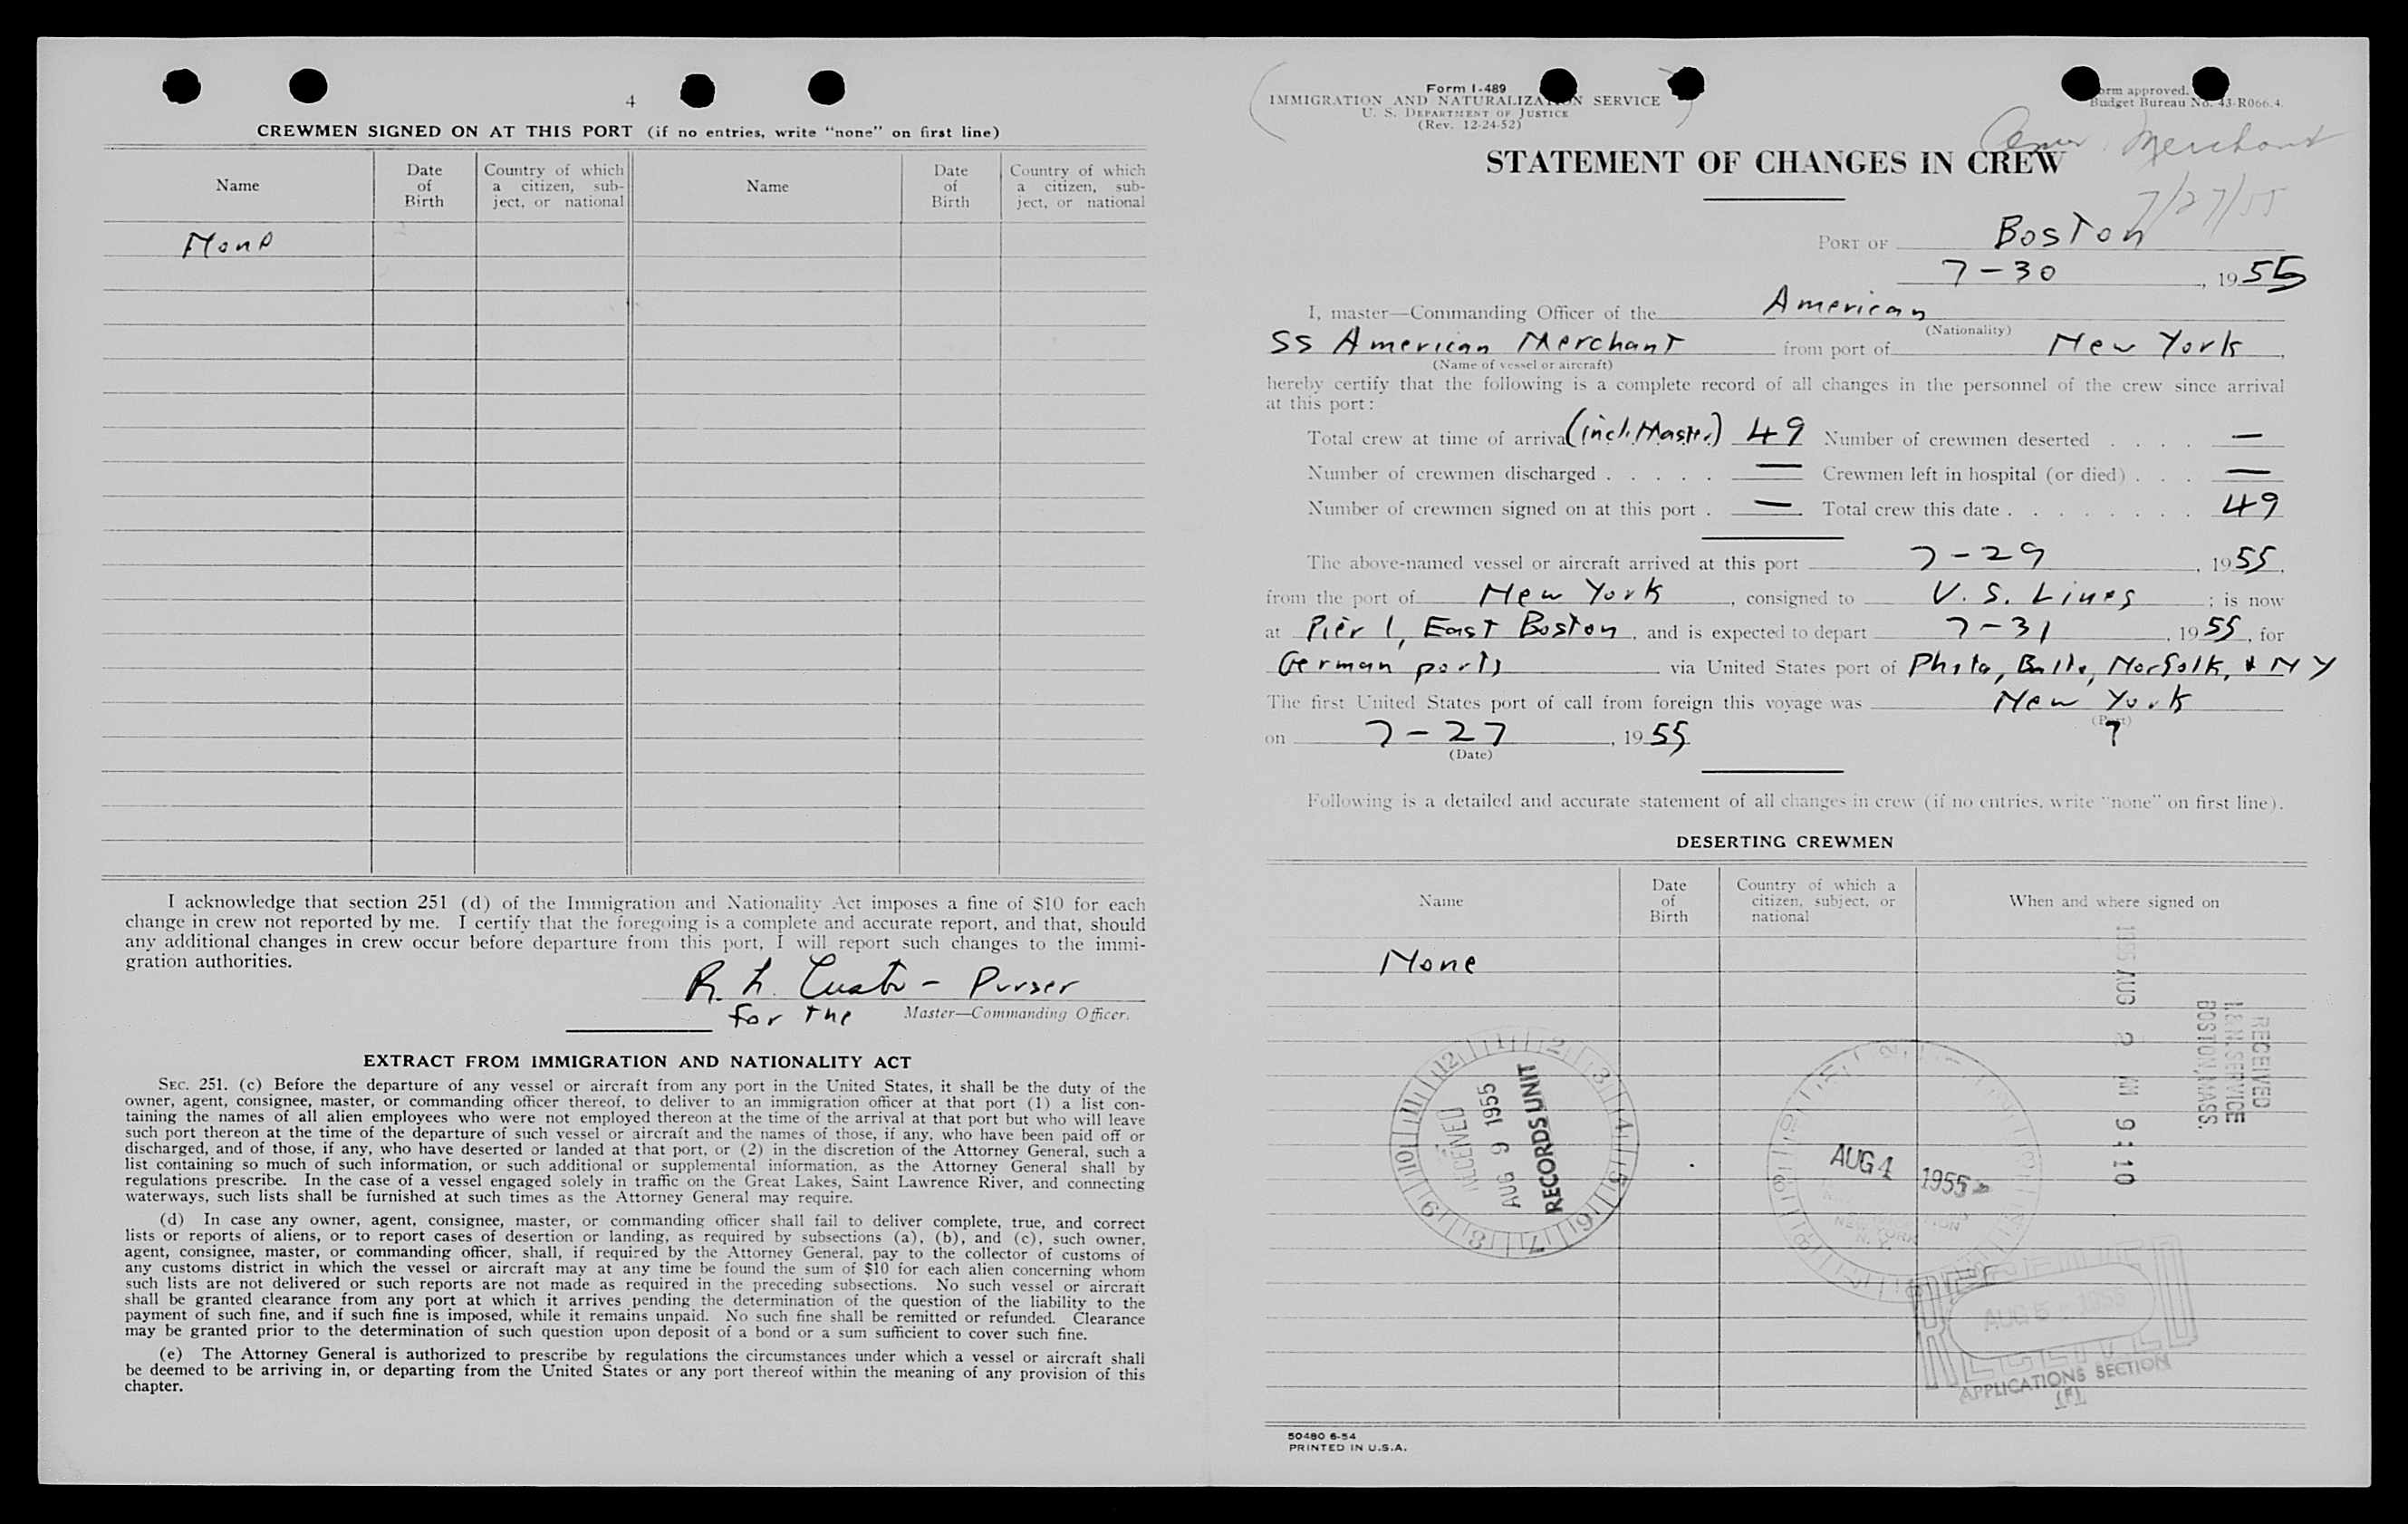 4
CREWMEN SIGNED ON AT THIS PORT (if no entries, write "none" on first line)
Name
Date of Birth
Country of which a citizen, subject, or national
Name
Date of Birth
Country of which a citizen, subject, or national
None
I acknowledge that section 251 (d) of the Immigration and Nationality Act imposes a fine of $10 for each
change in crew not reported by me. I certify that the foregoing is a complete and accurate report, and that, should
any additional changes in crew occur before departure from this port, I will report such changes to the immi-
gration authorities.
R. L. - Purser
for the Master—Commanding Officer.
EXTRACT FROM IMMIGRATION AND NATIONALITY ACT
SEC. 251. (c) Before the departure of any vessel or aircraft from any port in the United States, it shall be the duty of the
owner, agent, consignee, master, or commanding officer thereof, to deliver to an immigration officer at that port (1) a list con-
taining the names of all alien employees who were not employed thereon at the time of the arrival at that port but who will leave
such port thereon at the time of the departure of such vessel or aircraft and the names of those, if any, who have been paid off or
discharged, and of those, if any, who have deserted or landed at that port, or (2) in the discretion of the Attorney General, such a
list containing so much of such information, or such additional or supplemental information, as the Attorney General shall by
regulations prescribe. In the case of a vessel engaged solely in traffic on the Great Lakes, Saint Lawrence River, and connecting
waterways, such lists shall be furnished at such times as the Attorney General may require.
(d) In case any owner, agent, consignee, master, or commanding officer shall fail to deliver complete, true, and correct
lists or reports of aliens, or to report cases of desertion or landing, as required by subsections (a), (b), and (c), such owner,
agent, consignee, master, or commanding officer, shall, if required by the Attorney General, pay to the collector of customs of
any customs district in which the vessel or aircraft may at any time be found the sum of $10 for each alien concerning whom
such lists are not delivered or such reports are not made as required in the preceding subsections. No such vessel or aircraft
shall be granted clearance from any port at which it arrives pending the determination of the question of the liability to the
payment of such fine, and if such fine is imposed, while it remains unpaid. No such fine shall be remitted or refunded. Clearance
may be granted prior to the determination of such question upon deposit of a bond or a sum sufficient to cover such fine.
(e) The Attorney General is authorized to prescribe by regulations the circumstances under which a vessel or aircraft shall
be deemed to be arriving in, or departing from the United States or any port thereof within the meaning of any provision of this
chapter.
Form I-489
IMMIGRATION AND NATURALIZATION SERVICE
U. S. DEPARTMENT OF JUSTICE
(Rev. 12-24-52)
Form approved.
Budget Bureau No. 43-R066.4.
Amer. Merchant
7/27/55
STATEMENT OF CHANGES IN CREW
PORT OF Boston
7-30, 1955
I, master—Commanding Officer of the American
(Nationality)
SS American Merchant from port of New York,
(Name of vessel or aircraft)
hereby certify that the following is a complete record of all changes in the personnel of the crew since arrival
at this port:
Total crew at time of arrival (incl. Master) 49 Number of crewmen deserted . . . . —
Number of crewmen discharged . . . . . — Crewmen left in hospital (or died) . . . —
Number of crewmen signed on at this port . — Total crew this date . . . . . . . . 49
The above-named vessel or aircraft arrived at this port 7-29, 1955,
from the port of New York, consigned to U. S. Lines; is now
at Pier 1, East Boston, and is expected to depart 7-31, 1955, for
German ports via United States port of Phila, Balto, Norfolk, & NY
The first United States port of call from foreign this voyage was New York
(Port)
on 7-27, 1955
(Date)
Following is a detailed and accurate statement of all changes in crew (if no entries, write "none" on first line).
DESERTING CREWMEN
Name
Date of Birth
Country of which a citizen, subject, or national
When and where signed on
None
RECEIVED
I. & N. SERVICE
BOSTON, MASS.
1955 AUG 2 AM 9:10
RECEIVED
AUG 9 1955
RECORDS UNIT
12 1 2 3 4 5 6 7 8 9 10 11
AUG 4 1955
NEW YORK
N. Y.
RECEIVED
AUG 5 - 1955
APPLICATIONS SECTION
(F)
50480 6-54
PRINTED IN U.S.A.